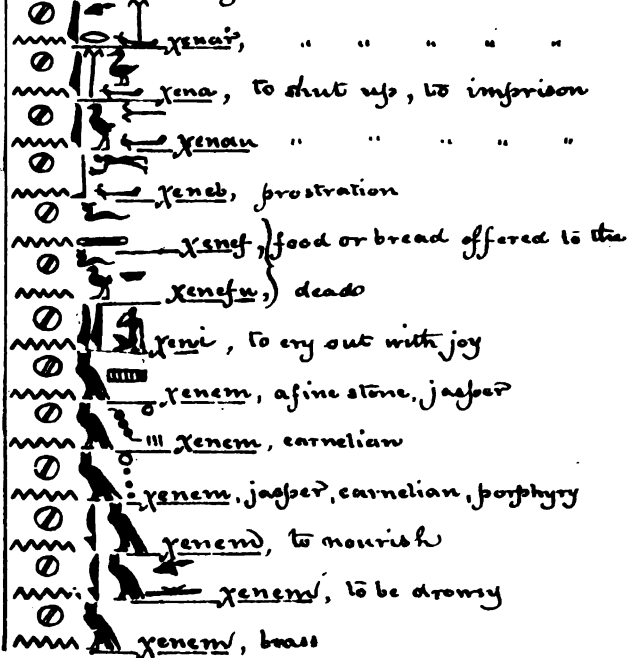 χenȧr, " " " " "
χena, to shut up, to imprison
χenau " " " " "
χeneb, prostration
χenef, } food or bread offered to the
χenefu, } dead
χeni, to cry out with joy
χenem, a fine stone, jasper
χenem, carnelian
χenem, jasper, carnelian, porphyry
χenem, to nourish
χenem, to be drowsy
χenem, brass